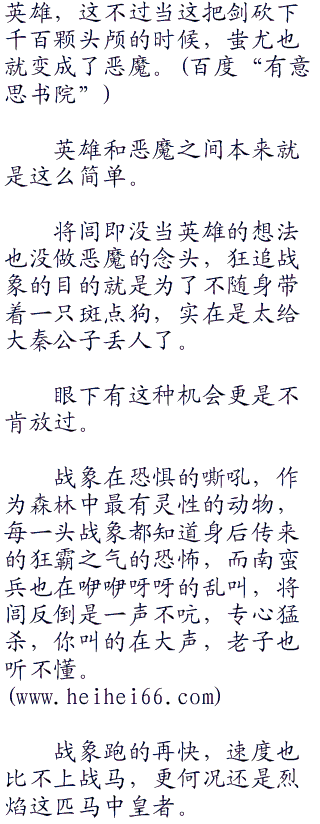 英雄，这不过当这把剑砍下
千百颗头颅的时候，蚩尤也
就变成了恶魔。(百度“有意
思书院”)
英雄和恶魔之间本来就
是这么简单。
将闾即没当英雄的想法
也没做恶魔的念头，狂追战
象的目的就是为了不随身带
着一只斑点狗，实在是太给
大秦公子丢人了。
眼下有这种机会更是不
肯放过。
战象在恐惧的嘶吼，作
为森林中最有灵性的动物，
每一头战象都知道身后传来
的狂霸之气的恐怖，而南蛮
兵也在咿咿呀呀的乱叫，将
闾反倒是一声不吭，专心猛
杀，你叫的在大声，老子也
听不懂。
(www.heihei66.com)
战象跑的再快，速度也
比不上战马，更何况还是烈
焰这匹马中皇者。